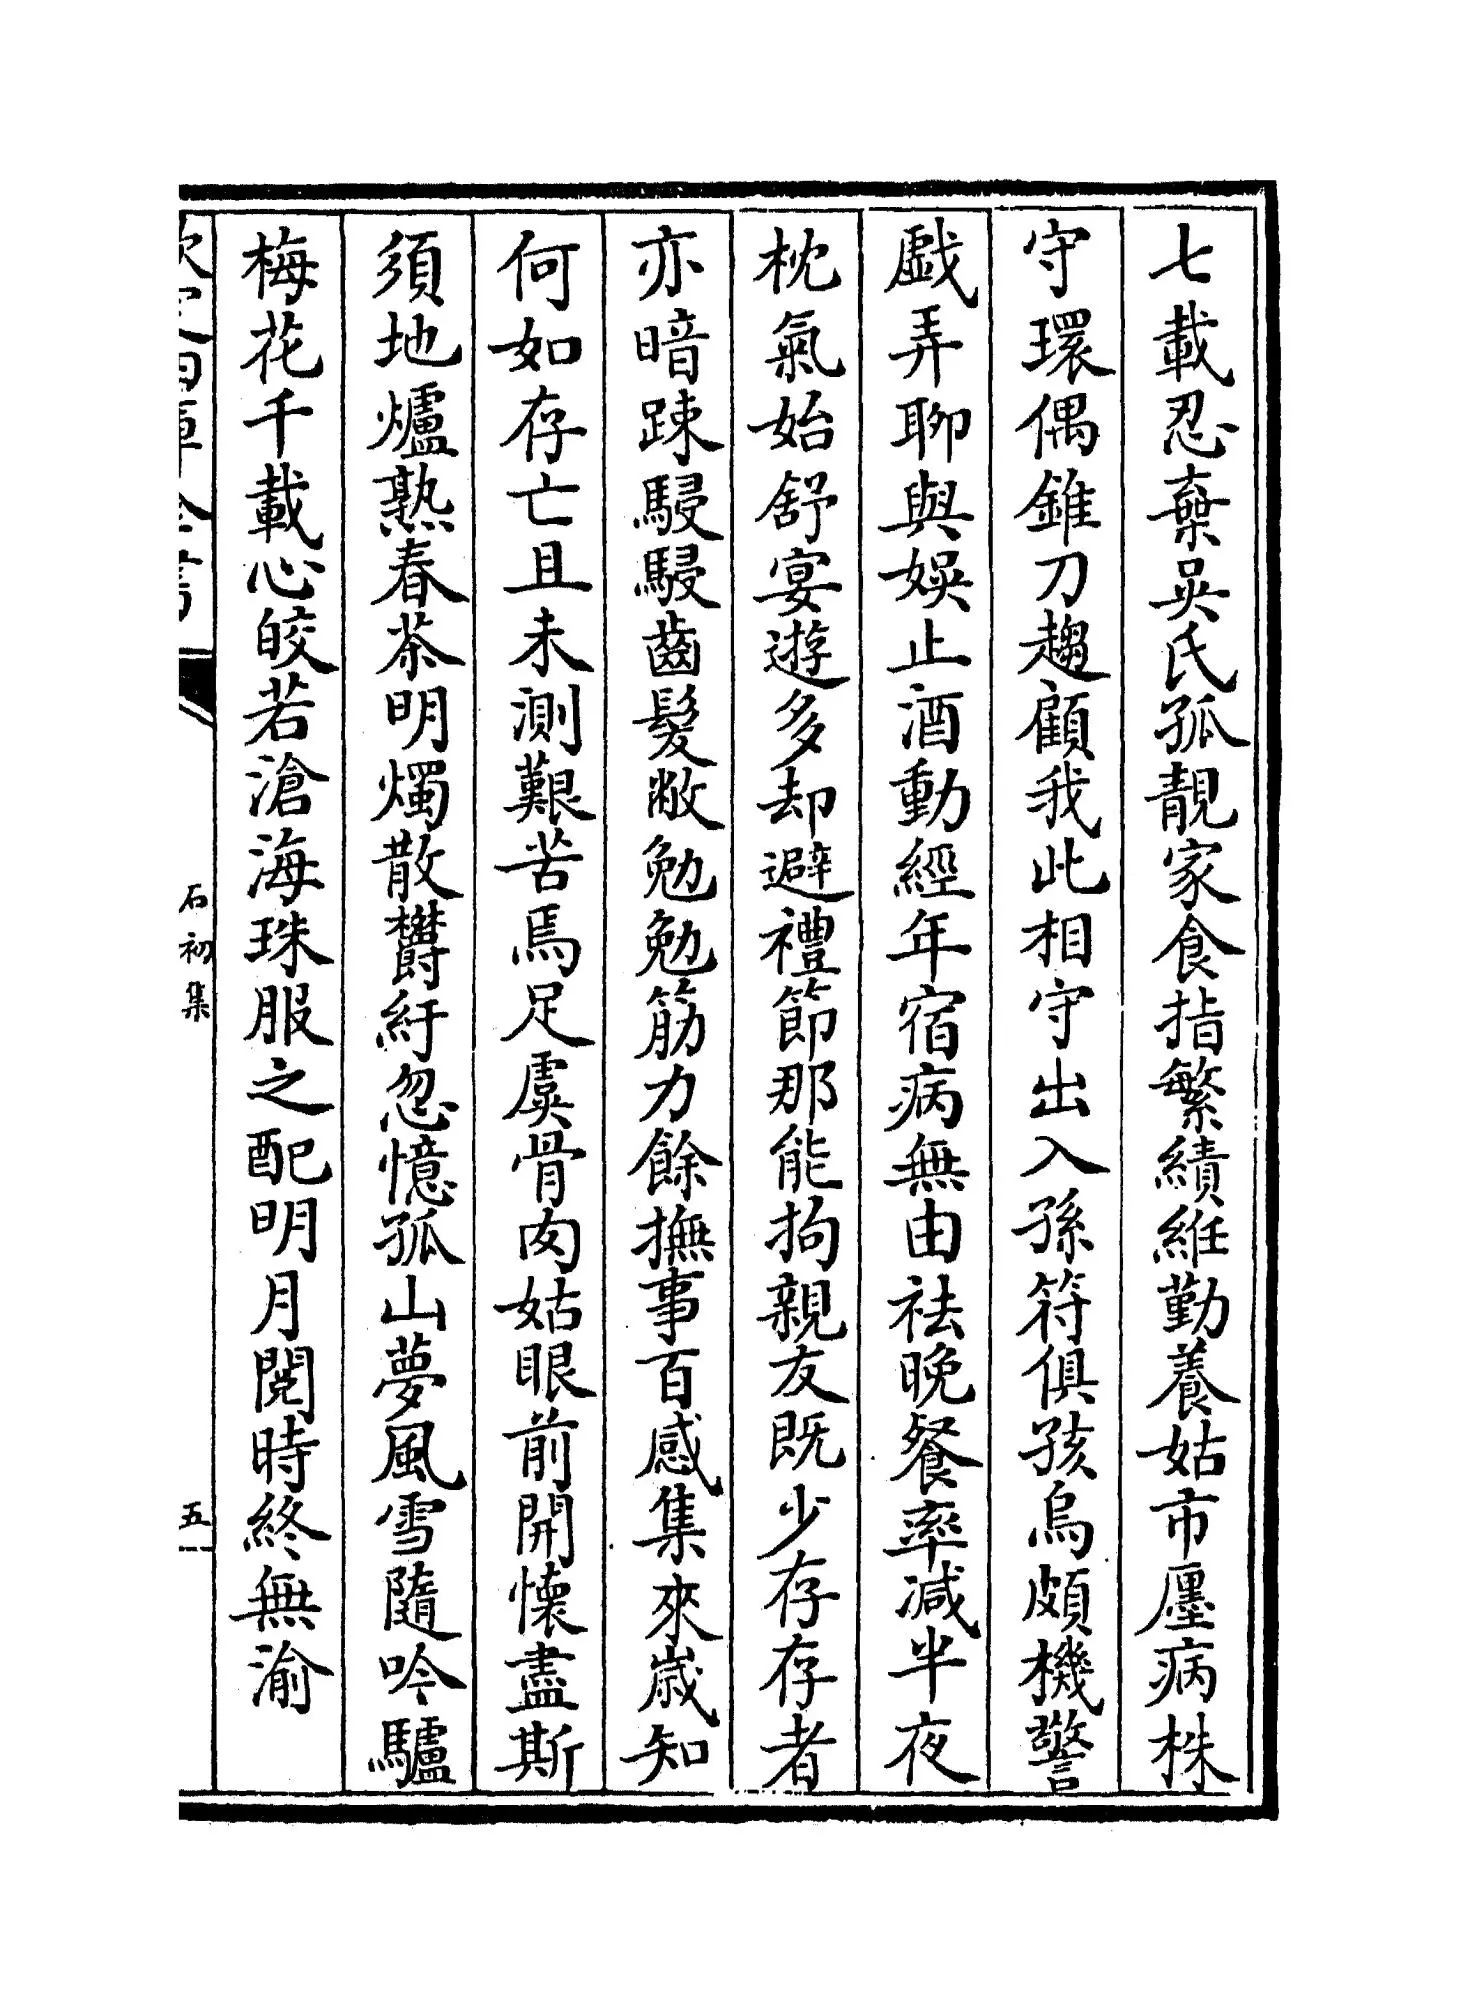 七載忍棄吳氏孤靚家食指繁績維勤養姑市廛病株
守環偶錐刀趨顧我此相守出入孫符俱孩烏頗機警
戲弄聊與娛止酒動經年宿病無由祛晚餐率減半夜
枕氣始舒宴遊多却避禮節那能拘親友既少存存者
亦暗踈駸駸齒髮敝勉勉筋力餘撫事百感集來嵗知
何如存亡且未測艱苦焉足虞骨肉姑眼前開懷盡斯
須地爐熟春茶明燭散欝紆忽憶孤山夢風雪隨吟驢
梅花千載心皎若滄海珠服之配明月閱時終無渝
欽定四庫全書
石初集
五